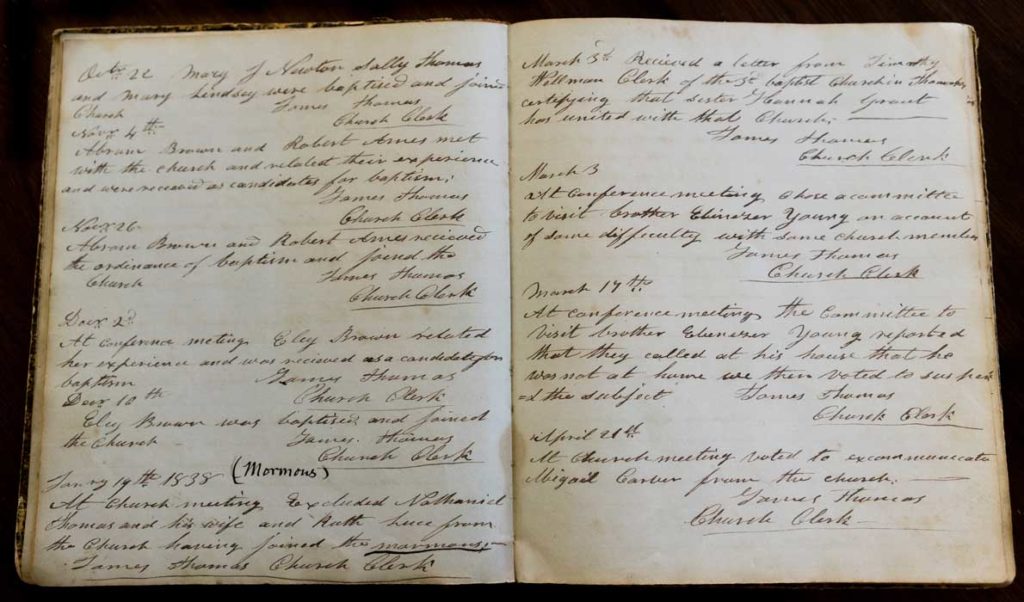 Octr 22 Mary J Newton Sally Thomas
and Mary Lindsey were baptised and joined
Church James Thomas
Church Clerk
Novr 4th
Abram Brown and Robert Ames met
with the church and related their experience
and were received as candidates for baptism;
James Thomas
Church Clerk
Novr 26
Abram Brown and Robert Ames recieved
the ordinance of baptism and joined the
Church James Thomas
Church Clerk
Decr 2d
At conference meeting Eley Brown related
her experience and was recieved as a candidate for
baptism James Thomas
Decr 10th Church Clerk
Eley Brown was baptised and joined
the Church James Thomas
Church Clerk
Janry 19th 1838 (Mormons)
At Church meeting Excluded Nathaniel
Thomas and his wife and Ruth from
the Church having joined the mormons;
James Thomas Church Clerk
March 3d Recieved a letter from Timothy
Wellman Clerk of the 3d baptist Church in
certifying that sister Hannah Grant
has united with that Church;
James Thomas
Church Clerk
March 3
At Conference meeting chose a committe
to visit brother Ebenezer Young on account
of some difficulty with some church member
James Thomas
Church Clerk
March 17th
At conference meeting the Committe to
visit brother Ebenezer Young reported
that they called at his house that he
was not at home we then voted to suspen
ed the subject James Thomas
Church Clerk
April 21th
At Church meeting voted to excommunicate
Abigail Carver from the church;
James Thomas
Church Clerk